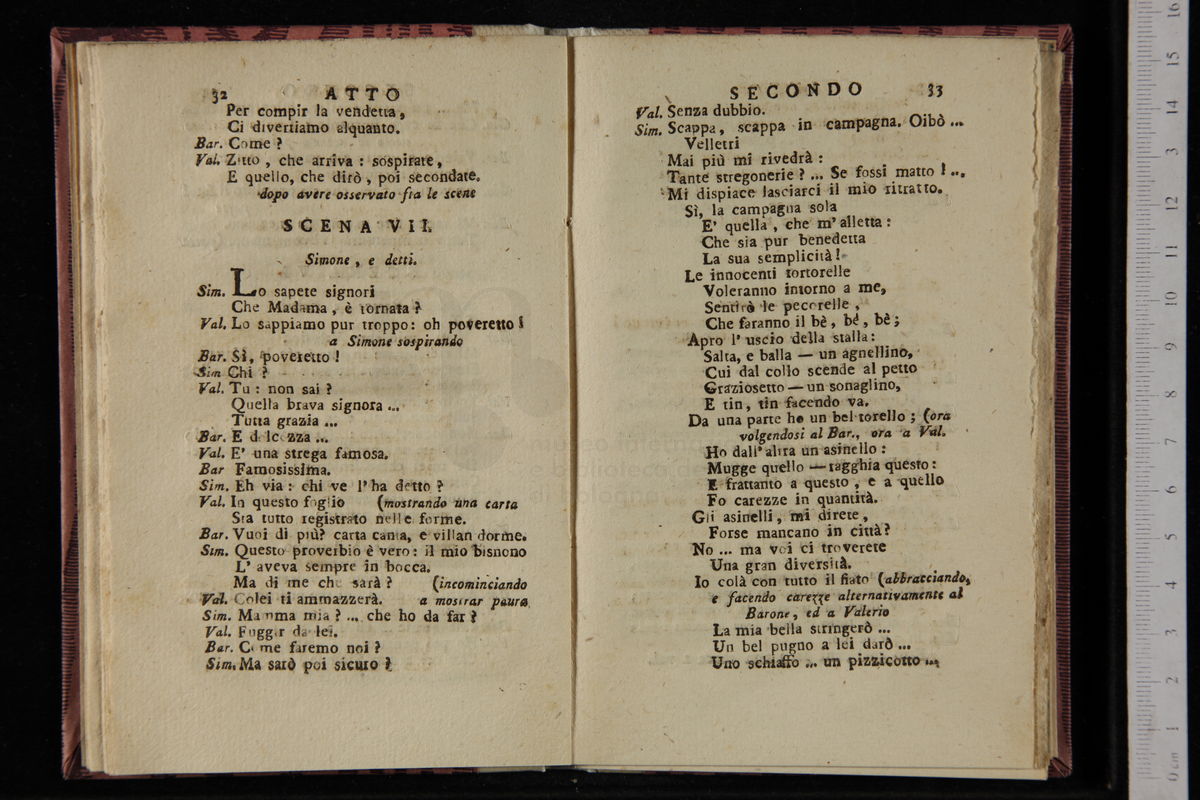 32 ATTO
Per compir la vendetta,
Ci divertiamo alquanto.
Bar. Come?
Val. Zitto, che arriva: sospirate,
E quello, che dirò, poi secondate.
dopo avere osservato fra le scene
SCENA VII.
Simone, e detti.
Sim. Lo sapete signori
Che Madama, è tornata?
Val. Lo sappiamo pur troppo: oh poveretto!
a Simone sospirando
Bar. Sì, poveretto!
Sim Chi?
Val. Tu: non sai?
Quella brava signora ...
Tutta grazia ...
Bar. E dolcezza ...
Val. E' una strega famosa.
Bar Famosissima.
Sim. Eh via: chi ve l'ha detto?
Val. In questo foglio (mostrando una carta
Sta tutto registrato nelle forme.
Bar. Vuoi di più? carta canta, e villan dorme.
Sim. Questo proverbio è vero: il mio bisnono
L'aveva sempre in bocca.
Ma di me che sarà? (incominciando
Val. Colei ti ammazzerà. a mostrar paura
Sim. Mamma mia? ... che ho da far?
Val. Fuggir da lei.
Bar. Come faremo noi?
Sim. Ma sarò poi sicuro?
SECONDO 33
Val. Senza dubbio.
Sim. Scappa, scappa in campagna. Oibò ...
Velletri
Mai più mi rivedrà:
Tante stregonerie? ... Se fossi matto! ...
Mi dispiace lasciarci il mio ritratto.
Sì, la campagna sola
E' quella, che m'alletta:
Che sia pur benedetta
La sua semplicità!
Le innocenti tortorelle
Voleranno intorno a me,
Sentirò le pecorelle,
Che faranno il bè, bè, bè;
Apro l'uscio della stalla:
Salta, e balla — un agnellino,
Cui dal collo scende al petto
Graziosetto — un sonaglino,
E tin, tin facendo va.
Da una parte ho un bel torello; (ora
volgendosi al Bar., ora a Val.
Ho dall'altra un asinello:
Mugge quello — ragghia questo:
E frattanto a questo, e a quello
Fo carezze in quantità.
Gli asinelli, mi direte,
Forse mancano in città?
No ... ma voi ci troverete
Una gran diversità.
Io colà con tutto il fiato (abbracciando,
e facendo carezze alternativamente al
Barone, ed a Valerio
La mia bella stringerò ...
Un bel pugno a lei darò ...
Uno schiaffo ... un pizzicotto ...